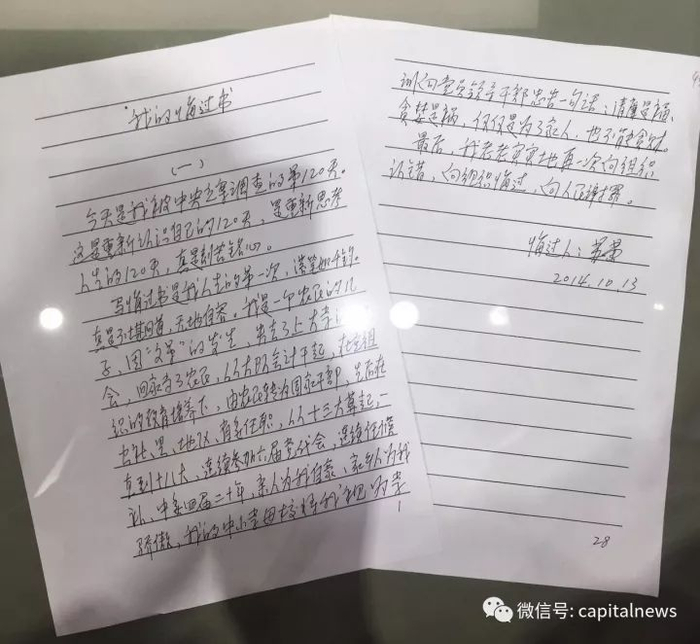 "我的悔过书
(一)
今天是我被中央立案调查的第120天。
这是重新认识自己的120天,是重新思考
人生的120天,真是刻骨铭心。
写悔过书是我人生的第一次,落笔如千钧。
真是不堪回首,无地自容。我是一个农民的儿
子,因"文革"的发生,失去了上大学
会,回家当了农民,从大队会计干起,在党组
织的教育培养下,由农民转为国家干部,先后在
吉林、黑、地区、省多任职,从十三大算起,一
直到十八大,连续参加六届党代会,连续
中委四届二十年,亲人为我自豪,家乡人为我
骄傲,我的中小学母校将我视为
1
训向党员领导干部忠告一句话:清廉是福,
贪婪是祸,仅仅是为了家人,也不能贪财。
最后,我老老实实地再一次向组织
认错,向组织悔过,向人民谢罪。
悔过人:苏荣
2014.10.13
28
微信号: capitalnews